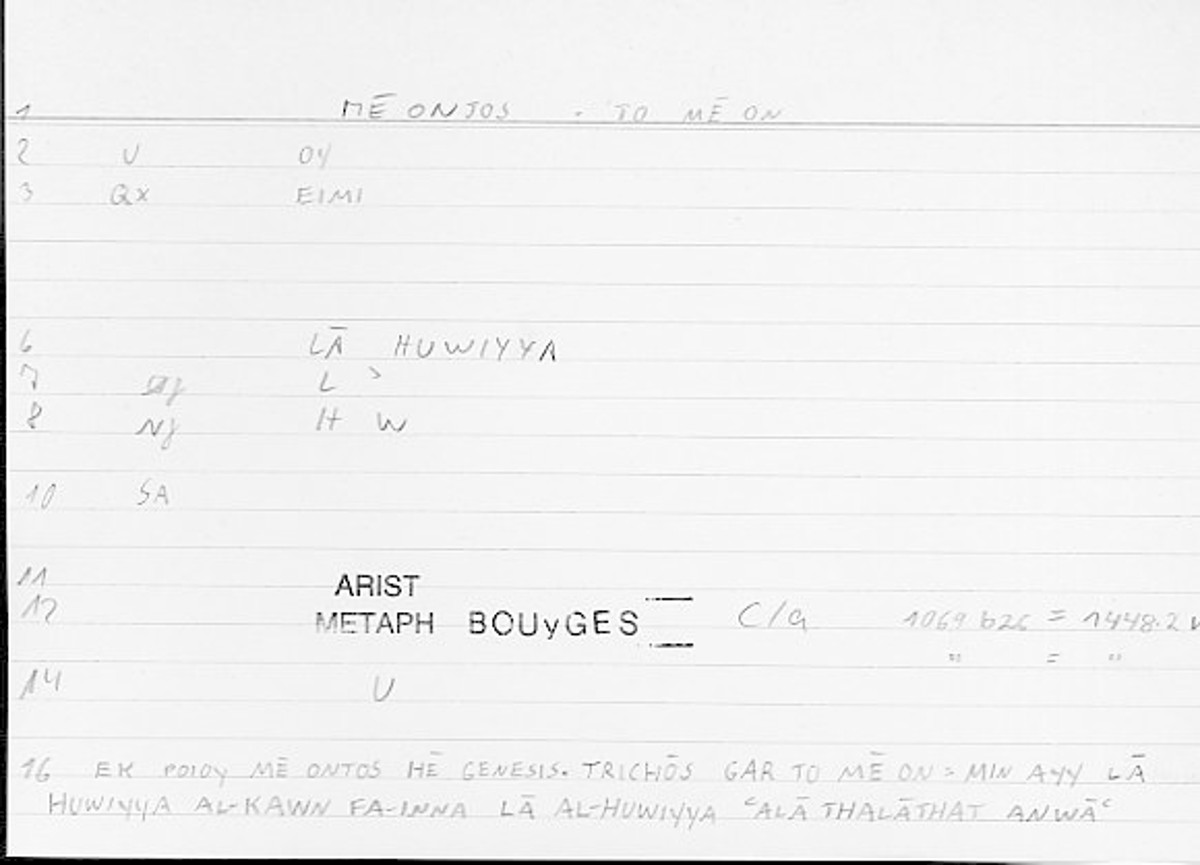 1 MĒ ONTOS - TO MĒ ON
2 U OY
3 QX EIMI
6 LĀ HUWIYYA
7 L ʾ
8 NJ H W
10 SA
11 ARIST
12 METAPH BOUyGES C/a 1069 b26 = 1448.2
" = "
14 U
16 EK POIOY MĒ ONTOS HĒ GENESIS. TRICHŌS GAR TO MĒ ON = MIN AYY LĀ
HUWIYYA AL-KAWN FA-INNA LĀ AL-HUWIYYA ʿALĀ THALĀTHAT ANWĀʿ